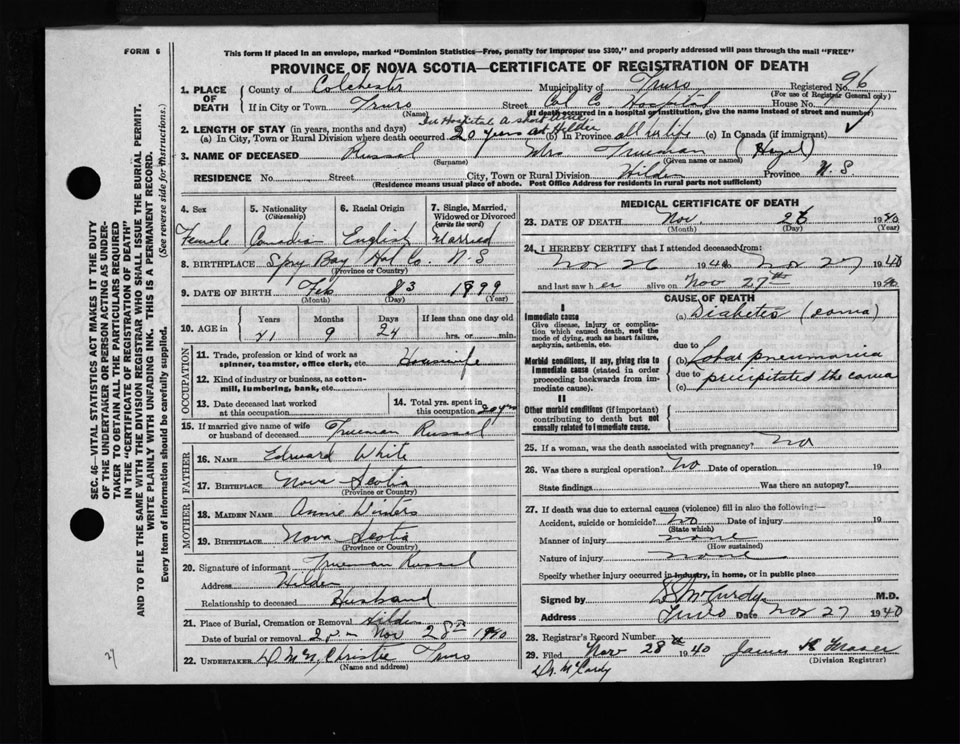 FORM 6
This form if placed in an envelope, marked "Dominion Statistics—Free, penalty for improper use $300," and properly addressed will pass through the mail "FREE"
PROVINCE OF NOVA SCOTIA—CERTIFICATE OF REGISTRATION OF DEATH
1. PLACE OF DEATH
County of Colchester Municipality of Truro Registered No. 96
(For use of Registrar General only)
If in City or Town Truro Street Col Co. Hospital House No.
(Name) (If death occurred in a hospital or institution, give the name instead of street and number)
In Hospital a short time
2. LENGTH OF STAY (in years, months and days)
(a) In City, Town or Rural Division where death occurred 20 years at Hilden (b) In Province all her life (c) In Canada (if immigrant) ✓
3. NAME OF DECEASED Russel Mrs Trueman (Hazel)
(Surname) (Given name or names)
RESIDENCE No. Street City, Town or Rural Division Hilden Province N.S
(Residence means usual place of abode. Post Office Address for residents in rural parts not sufficient)
4. Sex 5. Nationality (Citizenship) 6. Racial Origin 7. Single, Married, Widowed or Divorced (write the word)
Female Canadian English Married
8. BIRTHPLACE Spry Bay Hal Co. N.S
(Province or Country)
9. DATE OF BIRTH Feb 3 1899
(Month) (Day) (Year)
10. AGE in Years Months Days If less than one day old
41 9 24 hrs. or min.
OCCUPATION
11. Trade, profession or kind of work as spinner, teamster, office clerk, etc. Housewife
12. Kind of industry or business, as cotton-mill, lumbering, bank, etc.
13. Date deceased last worked at this occupation 14. Total yrs. spent in this occupation 20 yrs
15. If married give name of wife or husband of deceased Trueman Russel
FATHER
16. NAME Edward White
17. BIRTHPLACE Nova Scotia
(Province or Country)
MOTHER
18. MAIDEN NAME Annie Winters
19. BIRTHPLACE Nova Scotia
(Province or Country)
20. Signature of informant Trueman Russel
Address Hilden
Relationship to deceased Husband
21. Place of Burial, Cremation or Removal Hilden
Date of burial or removal Nov 28th 1940
22. UNDERTAKER D McN. Christie Truro
(Name and address)
MEDICAL CERTIFICATE OF DEATH
23. DATE OF DEATH Nov. 1940
(Month) (Day) (Year)
24. I HEREBY CERTIFY that I attended deceased from:
Nov 26 1940 to Nov 27 1940
and last saw her alive on Nov 27th 1940
CAUSE OF DEATH
I
Immediate cause (a) Diabetes (coma)
Give disease, injury or complication which caused death, not the mode of dying, such as heart failure, asphyxia, asthenia, etc.
due to
Morbid conditions, if any, giving rise to immediate cause (stated in order proceeding backwards from immediate cause).
(b) Lobar pneumonia
due to
(c) precipitated the coma
II
Other morbid conditions (if important) contributing to death but not causally related to immediate cause.
25. If a woman, was the death associated with pregnancy? No
26. Was there a surgical operation? No Date of operation 19
State findings Was there an autopsy?
27. If death was due to external causes (violence) fill in also the following:—
Accident, suicide or homicide? No Date of injury 19
(State which)
Manner of injury none
(How sustained)
Nature of injury none
Specify whether injury occurred in industry, in home, or in public place
Signed by McCurdy M.D.
Address Truro Date Nov 27 1940
28. Registrar's Record Number
29. Filed Nov 28th 1940 James Fraser
(Division Registrar)
Dr. McCurdy
SEC. 46—VITAL STATISTICS ACT MAKES IT THE DUTY
OF THE UNDERTAKER OR PERSON ACTING AS UNDER-
TAKER TO OBTAIN ALL THE PARTICULARS REQUIRED
IN THE "CERTIFICATE OF REGISTRATION OF DEATH"
AND TO FILE THE SAME WITH THE DIVISION REGISTRAR WHO SHALL ISSUE THE BURIAL PERMIT.
WRITE PLAINLY WITH UNFADING INK. THIS IS A PERMANENT RECORD.
Every item of information should be carefully supplied. (See reverse side for instructions.)